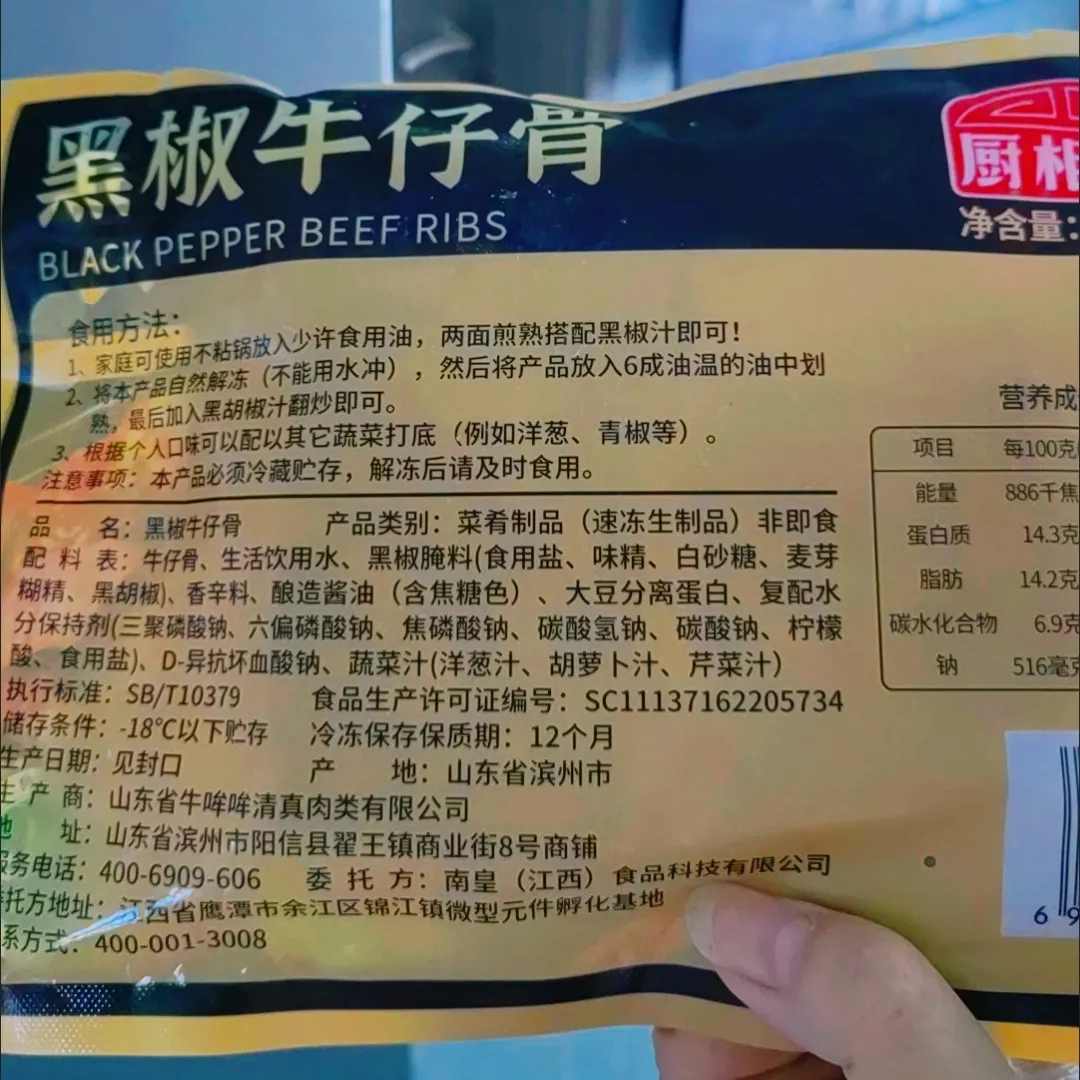 黑椒牛仔骨
BLACK PEPPER BEEF RIBS
厨
净含量:
食用方法:
1、家庭可使用不粘锅放入少许食用油，两面煎熟搭配黑椒汁即可！
2、将本产品自然解冻（不能用水冲），然后将产品放入6成油温的油中划
熟，最后加入黑胡椒汁翻炒即可。
3、根据个人口味可以配以其它蔬菜打底（例如洋葱、青椒等）。
注意事项：本产品必须冷藏贮存，解冻后请及时食用。
品 名：黑椒牛仔骨 产品类别：菜肴制品（速冻生制品）非即食
配 料 表：牛仔骨、生活饮用水、黑椒腌料(食用盐、味精、白砂糖、麦芽
糊精、黑胡椒)、香辛料、酿造酱油（含焦糖色）、大豆分离蛋白、复配水
分保持剂(三聚磷酸钠、六偏磷酸钠、焦磷酸钠、碳酸氢钠、碳酸钠、柠檬
酸、食用盐)、D-异抗坏血酸钠、蔬菜汁(洋葱汁、胡萝卜汁、芹菜汁）
执行标准：SB/T10379 食品生产许可证编号：SC11137162205734
储存条件：-18℃以下贮存 冷冻保存保质期：12个月
生产日期：见封口 产 地：山东省滨州市
生 产 商：山东省牛哞哞清真肉类有限公司
地 址：山东省滨州市阳信县翟王镇商业街8号商铺
服务电话：400-6909-606 委 托 方：南皇（江西）食品科技有限公司
托方地址：江西省鹰潭市余江区锦江镇微型元件孵化基地
系方式：400-001-3008
营养成
项目 每100克
能量 886千焦
蛋白质 14.3克
脂肪 14.2克
碳水化合物 6.9克
钠 516毫克
6 9